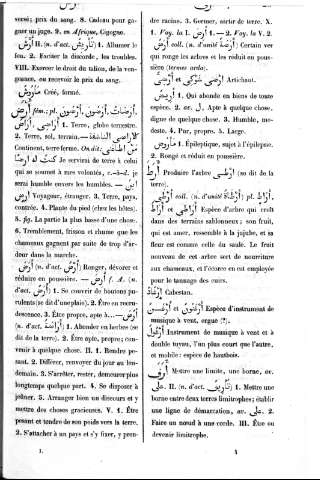 versé; prix du sang. 8. Cadeau pour ga-
gner un juge. 9. en Afrique, Cigogne.
أرش II. (n. d'act. تأريش) 1. Allumer le
feu. 2. Exciter la discorde, les troubles.
VIII. Exercer le droit du talion, de la ven-
geance, ou recevoir le prix du sang.
مأروش Créé, formé.
أرض fém.; pl. أرضون, أرضات,
1. Terre, globe terrestre.
2. Terre, sol, terrain.—
Continent, terre ferme. On dit:
Je servirai de terre à celui
qui se soumet à mes volontés, c.-à-d. je
serai humble envers les humbles. —
Voyageur, étranger. 3. Terre, pays,
contrée. 4. Plante du pied (chez les bêtes).
5. fig. La partie la plus basse d'une chose.
6. Tremblement, frisson et rhume que les
chameaux gagnent par suite de trop d'ar-
deur dans la marche.
أرض (n. d'act. أرض) Ronger, dévorer et
réduire en poussière. — f. A. (n.
d'act. أرض) 1. Se couvrir de boutons pu-
rulents (se dit d'une plaie). 2. Être en recru-
descence. 3. Être propre, apte à...—
(n. d'act. أراضة) 1. Abonder en herbes (se
dit de la terre). 2. Être apte, propre; con-
venir à quelque chose. II. 1. Rendre pe-
sant. 2. Différer, renvoyer du jour au len-
demain. 3. S'arrêter, rester, demeurer plus
longtemps quelque part. 4. Se disposer à
jeûner. 5. Arranger bien un discours et y
mettre des choses gracieuses. V. 1. Être
pesant et tendre de son poids vers la terre.
2. S'attacher à un pays et s'y fixer, y pren-
1.
dre racine. 3. Germer, sortir de terre. X.
1. Voy. la I. أرض 1. — 2. Voy. la V. 2.
أرض coll. (n. d'unité أرضة) Certain ver
qui ronge les arbres et les réduit en pous-
sière (termes arda).
أرضي شوكي et أرضي Artichaut.
أريض 1. Qui abonde en biens de toute
espèce. 2. av. ل, Apte à quelque chose,
digne de quelque chose. 3. Humble, mo-
deste. 4. Pur, propre. 5. Large.
مأروض 1. Épileptique, sujet à l'épilepsie.
2. Rongé et réduit en poussière.
أرط Produire l'arbre أرطى (se dit de la
terre).
أرطى coll. (n. d'unité أرطاة) pl.
et Espèce d'arbre qui croît
dans des terrains sablonneux; son fruit,
qui est amer, ressemble à la jujube, et sa
fleur est comme celle du saule. Le fruit
nouveau de cet arbre sert de nourriture
aux chameaux, et l'écorce en est employée
pour le tannage des cuirs.
Cabestan.
أرغنون et أرغن Espèce d'instrument de
musique à vent, orgue (?).
أرغول Instrument de musique à vent et à
double tuyau, l'un plus court que l'autre,
et mobile: espèce de hautbois.
أرف Mettre une limite, une borne, av.
على. II. (n. d'act. تأريف) 1. Mettre une
borne entre deux terres limitrophes; établir
une ligne de démarcation, av. على. 2.
Faire un nœud à une corde. III. Être ou
devenir limitrophe.
4